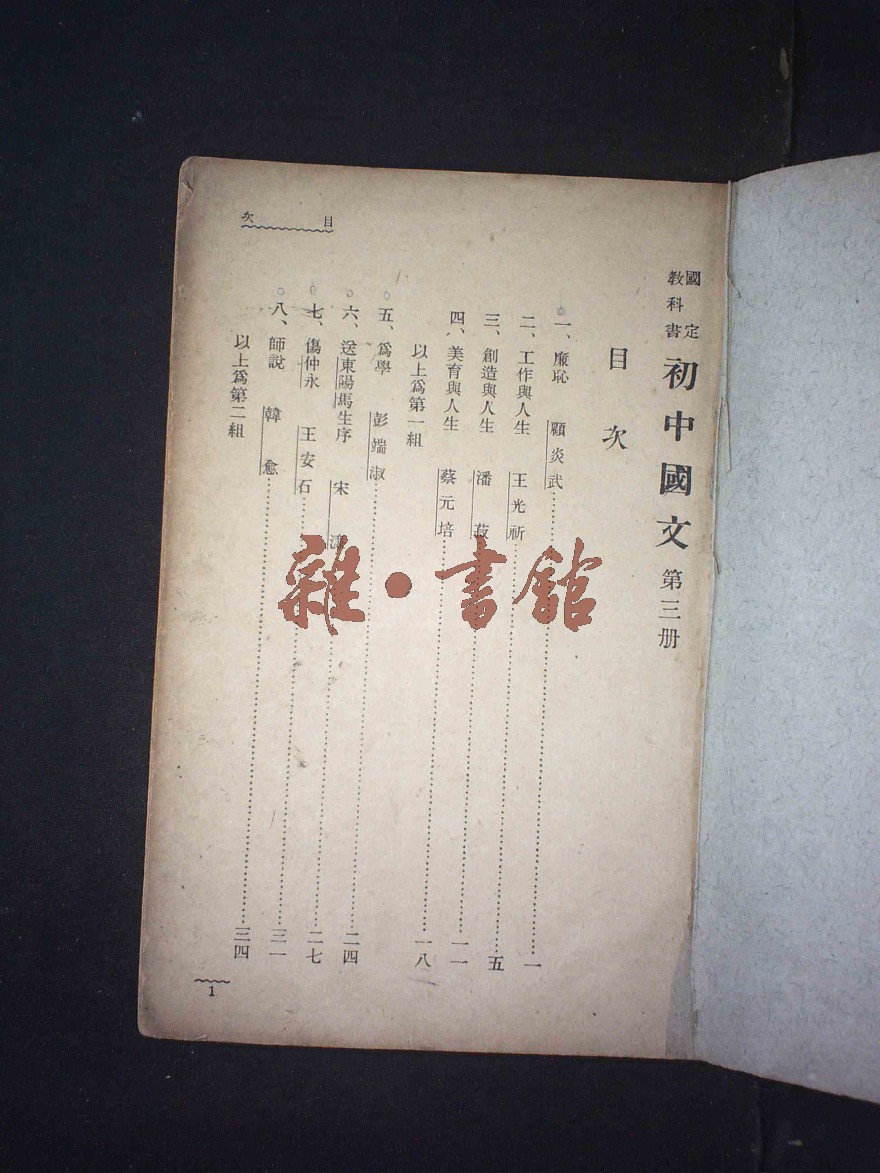 國定教科書 初中國文 第三册
目次
一、廉恥 顧炎武……一
二、工作與人生 王光祈……五
三、創造與人生 潘菽……一一
四、美育與人生 蔡元培……一八
以上爲第一組
五、爲學 彭端淑……二四
六、送東陽馬生序 宋……二七
七、傷仲永 王安石……三一
八、師説 韓愈……三四
以上爲第二組
目次
1
雜·書館